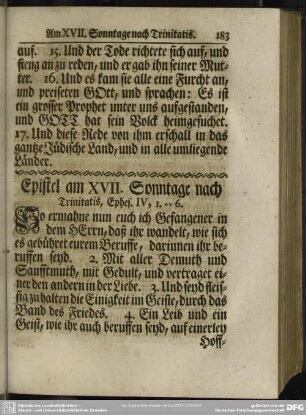 Am XVII. Sonntage nach Trinitatis. 183
auf. 15. Und der Tode richtete sich auf, und
fieng an zu reden, und er gab ihn seiner Mut-
ter. 16. Und es kam sie alle eine Furcht an,
und preiseten GOtt, und sprachen: Es ist
ein grosser Prophet unter uns aufgestanden,
und GOTT hat sein Volck heimgesuchet.
17. Und diese Rede von ihm erschall in das
gantze Jüdische Land, und in alle umliegende
Länder.
Epistel am XVII. Sonntage nach
Trinitatis, Ephes. IV, 1. -- 6.
So ermahne nun euch ich Gefangener in
dem HErrn, daß ihr wandelt, wie sich
es gebühret eurem Beruffe, darinnen ihr be-
ruffen seyd. 2. Mit aller Demuth und
Sanfftmuth, mit Gedult, und vertraget ei-
ner den andern in der Liebe. 3. Und seyd fleis-
sig zu halten die Einigkeit im Geiste, durch das
Band des Friedes. 4. Ein Leib und ein
Geist, wie ihr auch beruffen seyd, auf einerley
Hoff-